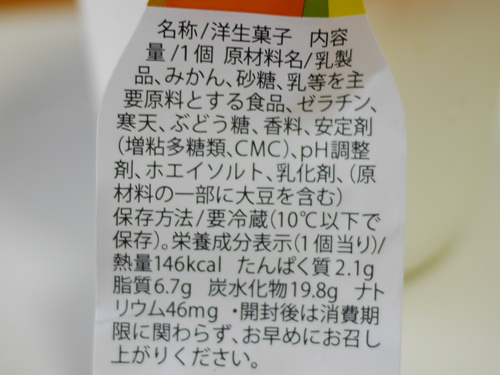 名称/洋生菓子　内容
量/1個 原材料名/乳製
品、みかん、砂糖、乳等を主
要原料とする食品、ゼラチン、
寒天、ぶどう糖、香料、安定剤
(増粘多糖類、CMC)、pH調整
剤、ホエイソルト、乳化剤、(原
材料の一部に大豆を含む)
保存方法/要冷蔵(10℃以下で
保存)。栄養成分表示(1個当り)/
熱量146kcal　たんぱく質2.1g
脂質6.7g　炭水化物19.8g　ナト
リウム46mg　・開封後は消費期
限に関わらず、お早めにお召し
上がりください。